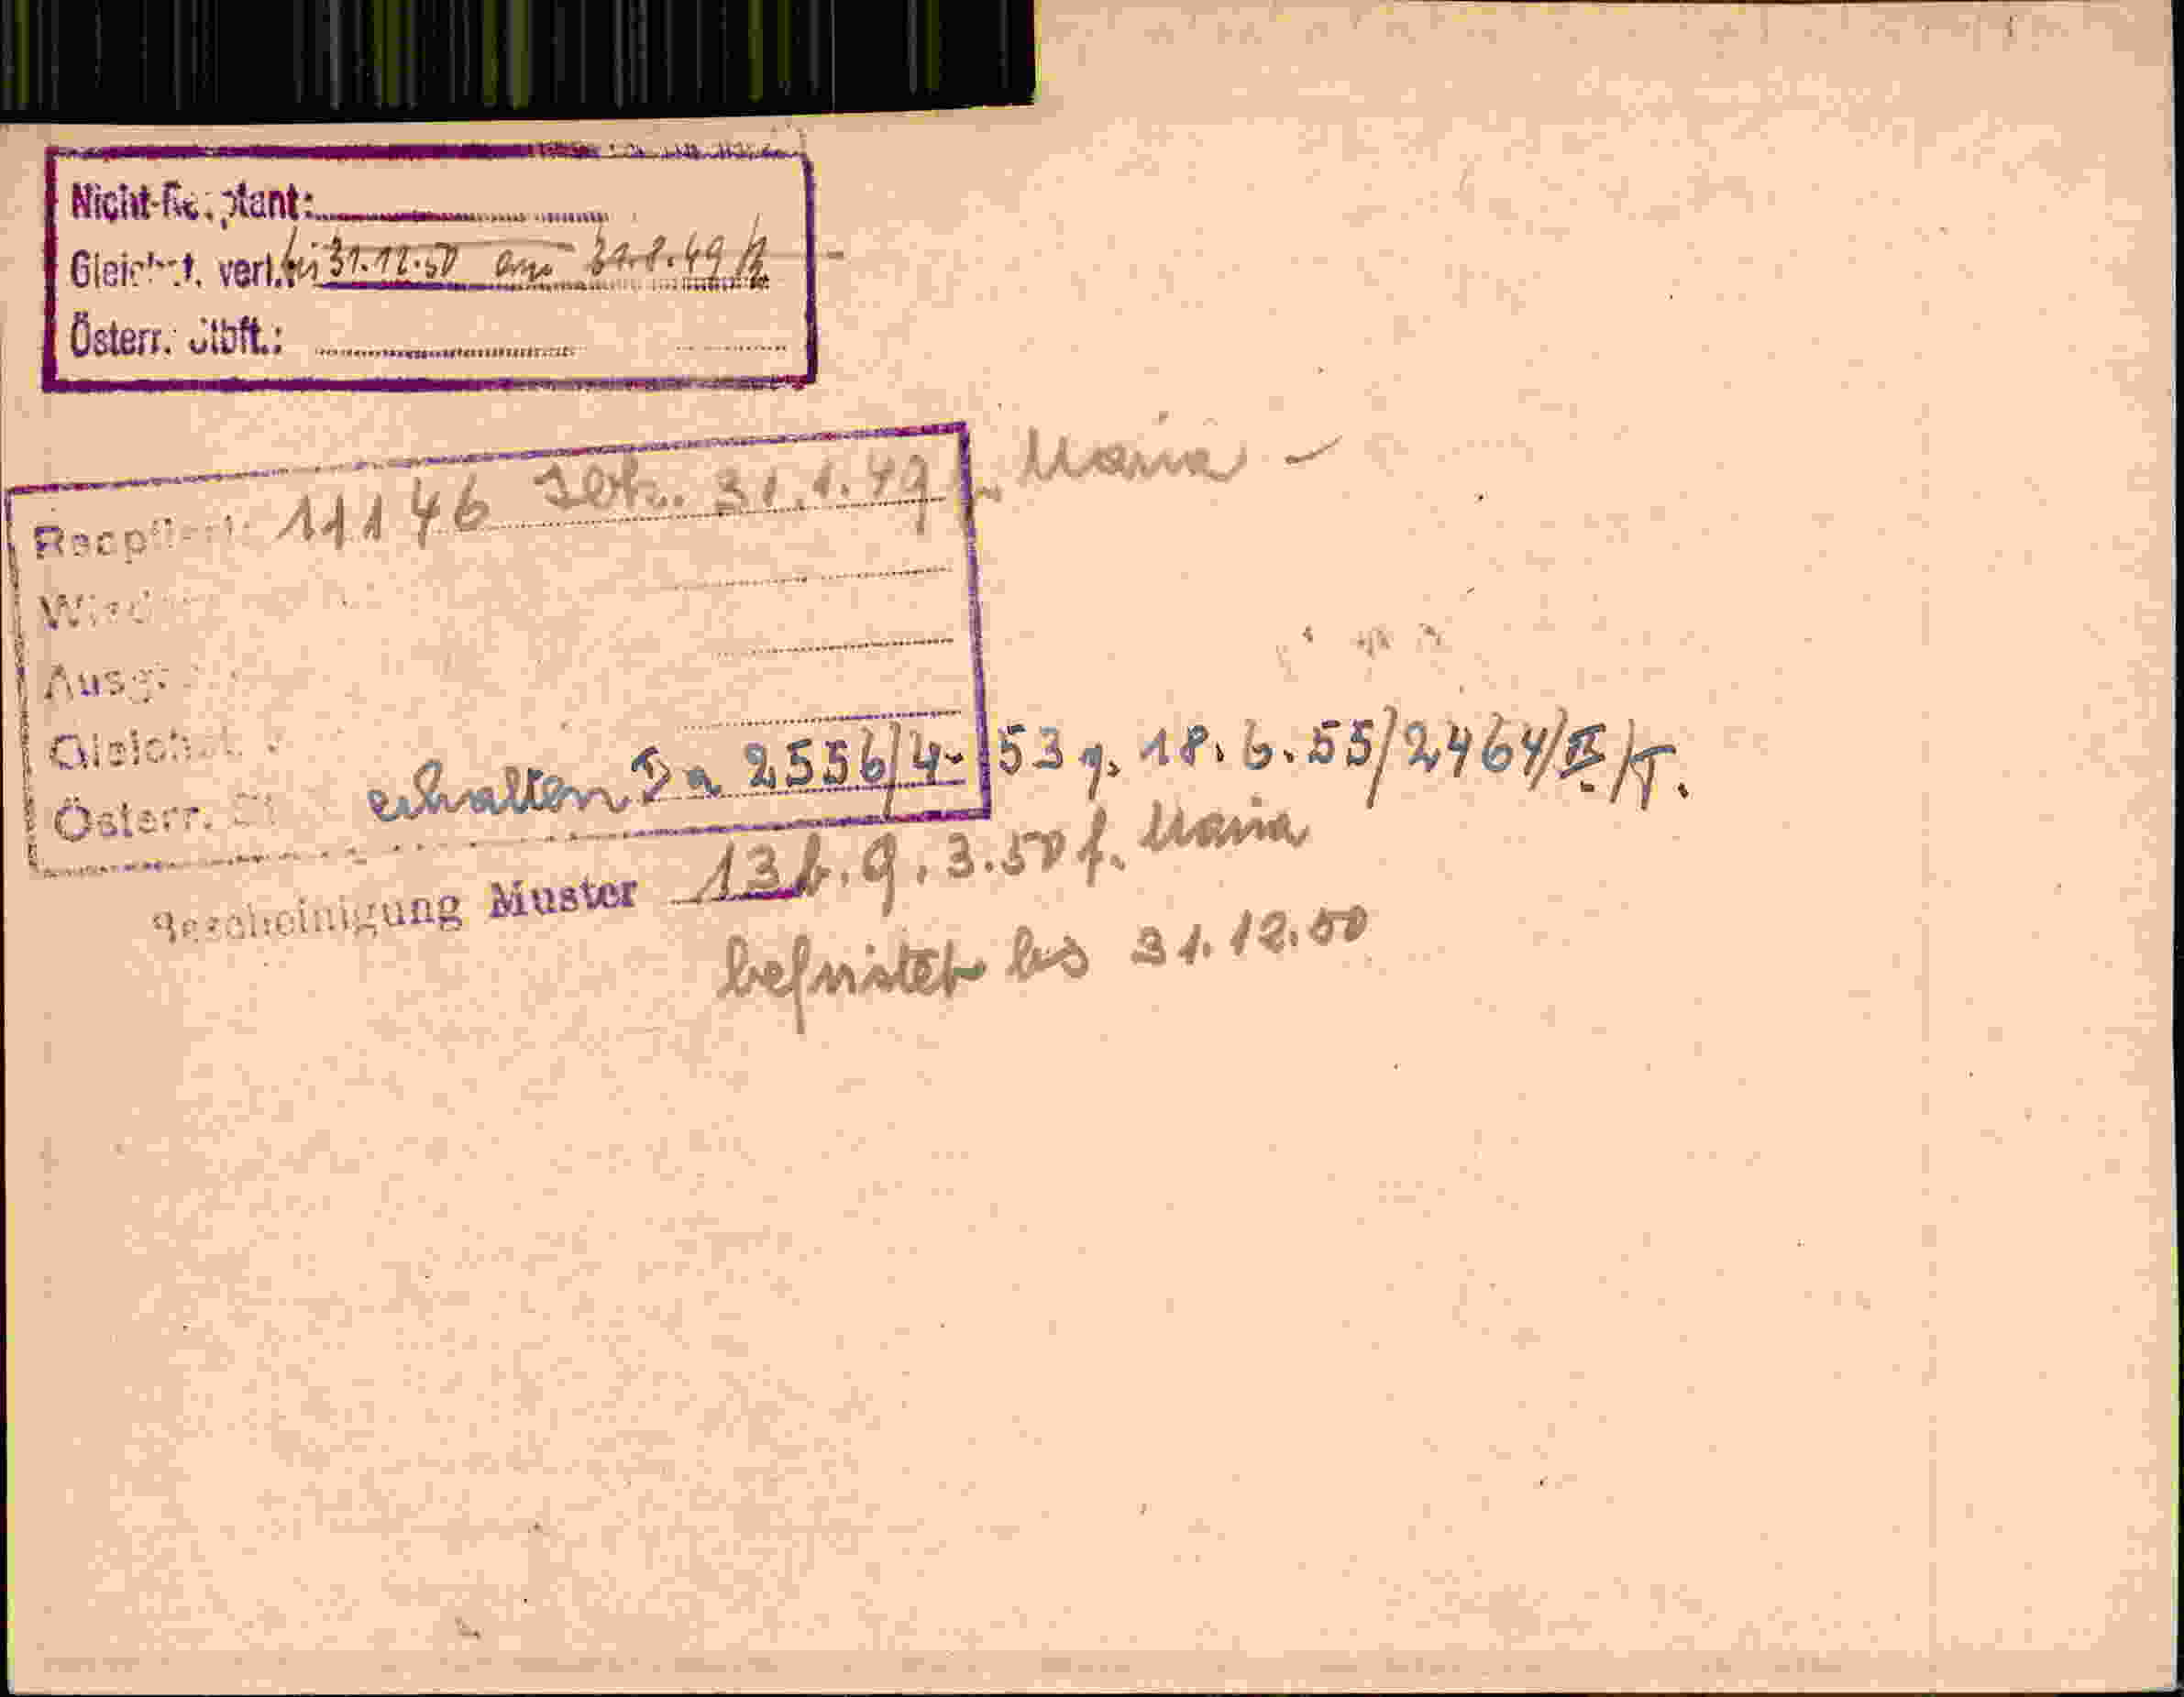 Nicht-Reoptant:
Gleichst. verl. bis 31.12.50 am 31.8.49
Österr. Stbft.:
Reoptiert: 11146 Ibk. 31.1.49 f. Maria -
Gleichst.
Österr. erhalten Da 2556/4-53 g. 18.6.55/2464/II/T.
Bescheinigung Muster 13 b. 9.3.50 f. Maria
befristet bis 31.12.50